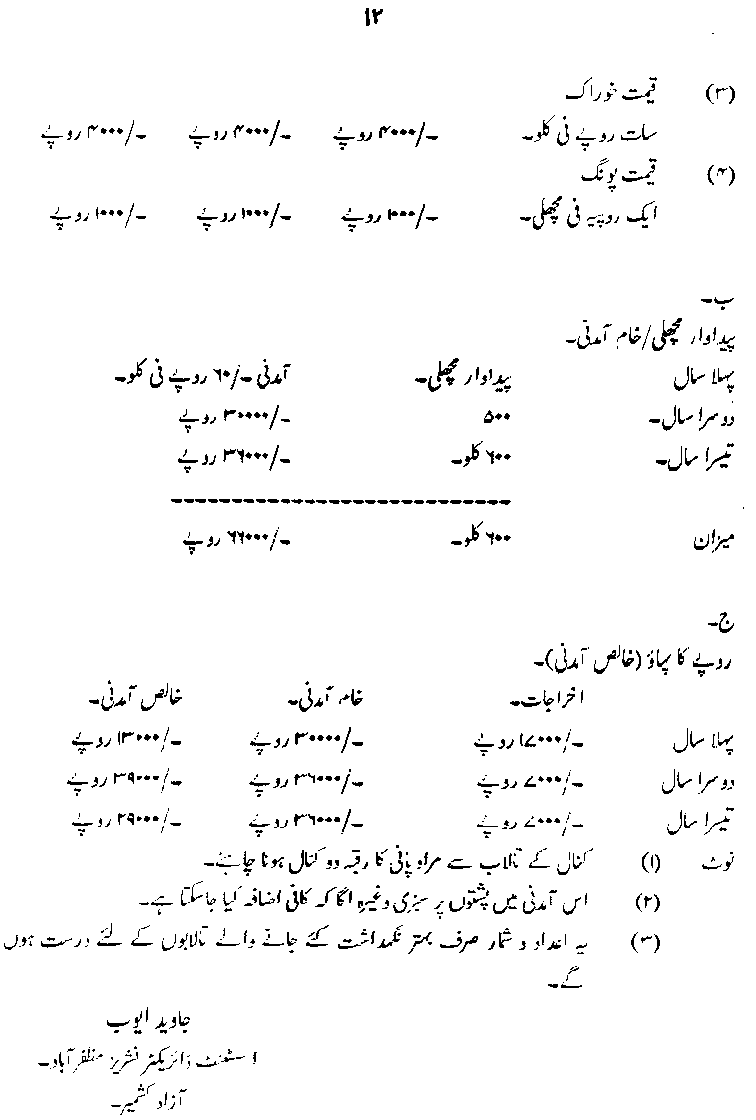 ۱۲
(۳) قیمت خوراک
سات روپے فی کلو۔ ۴۰۰۰/۔ روپے ۴۰۰۰/۔ روپے ۴۰۰۰/۔ روپے
(۴) قیمت پونگ
ایک روپیہ فی مچھلی۔ ۱۰۰۰/۔ روپے ۱۰۰۰/۔ روپے ۱۰۰۰/۔ روپے
ب۔
پیداوار مچھلی/خام آمدنی۔
پہلا سال پیداوار مچھلی۔ آمدنی ۶۰/۔ روپے فی کلو۔
دوسرا سال۔ ۵۰۰ ۳۰۰۰۰/۔ روپے
تیسرا سال۔ ۶۰۰ کلو۔ ۳۶۰۰۰/۔ روپے
میزان ۶۰۰ کلو۔ ۶۶۰۰۰/۔ روپے
ج۔
روپے کا بہاؤ (خالص آمدنی)۔
اخراجات۔ خام آمدنی۔ خالص آمدنی۔
پہلا سال ۱۷۰۰۰/۔ روپے ۳۰۰۰۰/۔ روپے ۱۳۰۰۰/۔ روپے
دوسرا سال ۷۰۰۰/۔ روپے ۳۶۰۰۰/۔ روپے ۳۹۰۰۰/۔ روپے
تیسرا سال ۷۰۰۰/۔ روپے ۳۶۰۰۰/۔ روپے ۲۹۰۰۰/۔ روپے
نوٹ (۱) کنال کے تالاب سے مراد پانی کا رقبہ دو کنال ہونا چاہئے۔
(۲) اس آمدنی میں پشتوں پر سبزی وغیرہ اگا کہ کافی اضافہ کیا جاسکتا ہے۔
(۳) یہ اعداد و شمار صرف بہتر نگہداشت کئے جانے والے تالابوں کے لئے درست ہوں
گے۔
جاوید ایوب
اسسٹنٹ ڈائریکٹر فشریز مظفر آباد۔
آزاد کشمیر۔